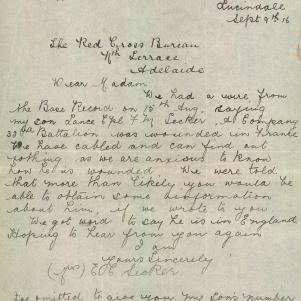 Lucindale
Sept 9th 16
The Red Cross Bureau
Nth Terrace
Adelaide
Dear Madam
We had a wire from
the Base Record on 15th Aug. saying
my son Lance Cpl F. M. Seeker, A Company
Battalion was wounded in France
We have cabled and can find out
nothing, as we are anxious to know
how he is wounded. We were told
that more than likely you would be
able to obtain some information
about him, if we wrote to you.
We got word to say he is in England
Hoping to hear from you again
I am
Yours Sincerely
(Mrs) Seeker
omitted to give you my Son's number